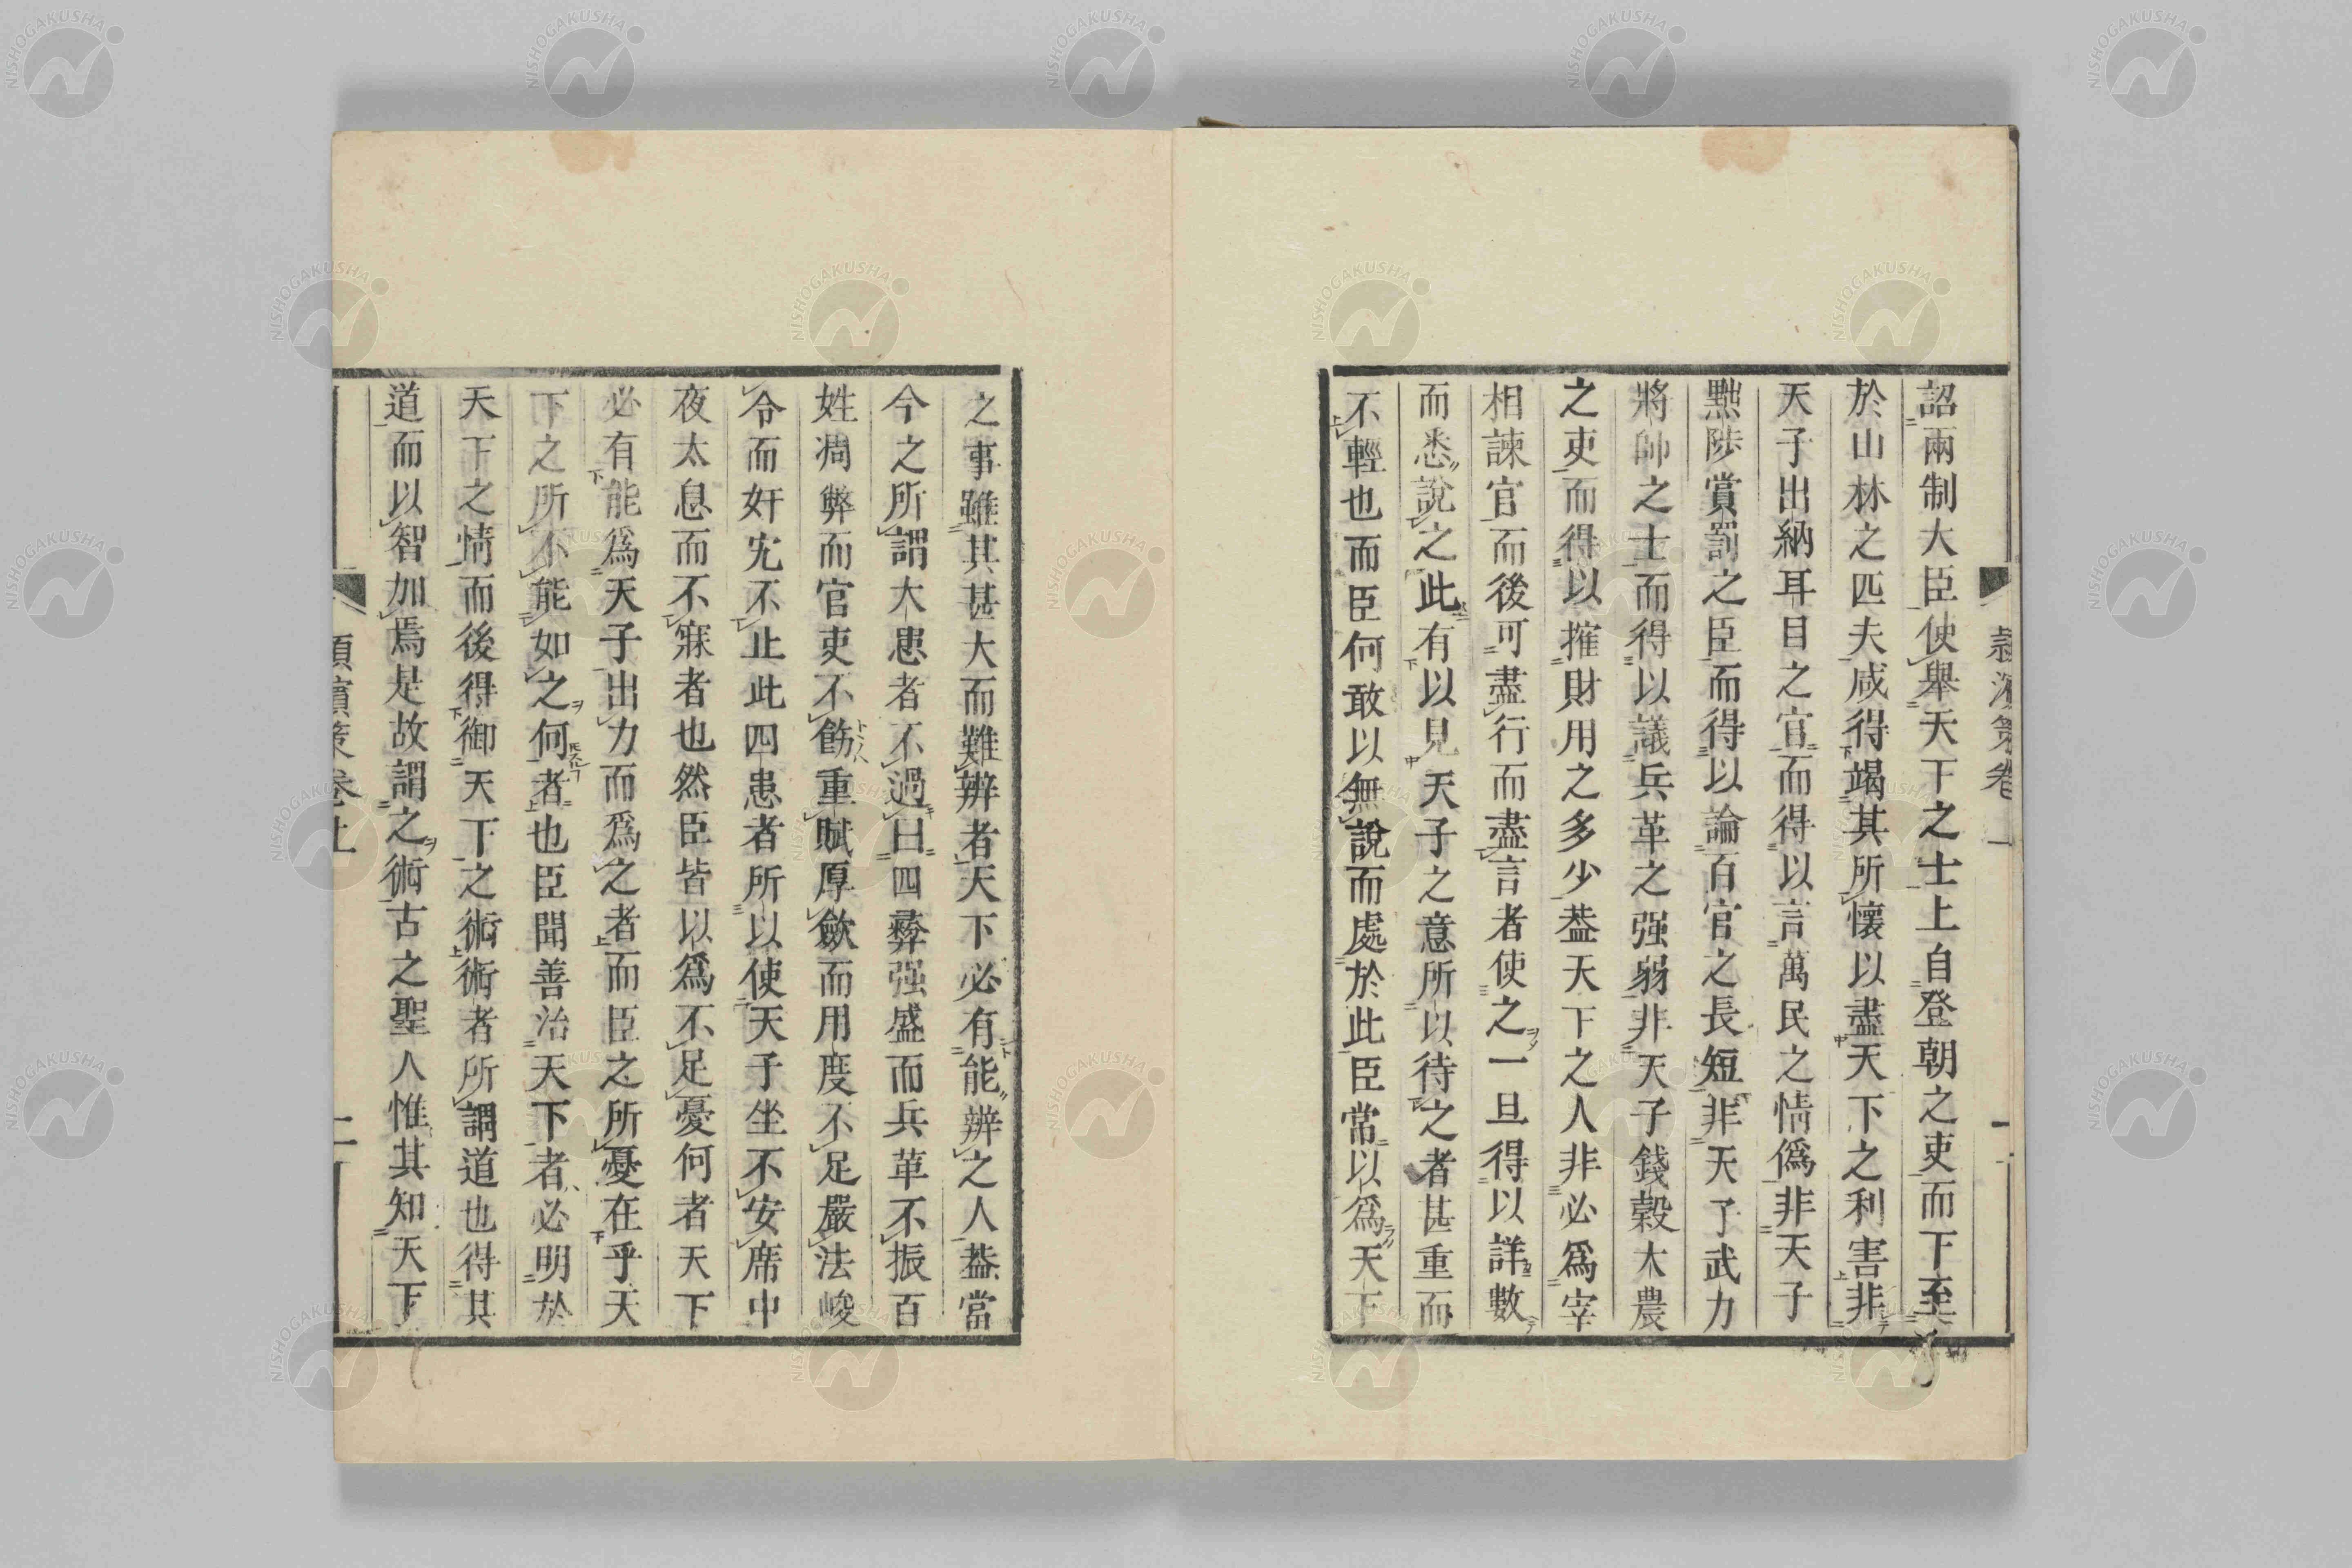 詔兩制大臣使舉天下之士上自登朝之吏而下至
於山林之匹夫咸得竭其所懷以盡天下之利害非
天子出納耳目之官而得以言萬民之情僞非天子
黜陟賞罰之臣而得以論百官之長短非天子武力
將帥之士而得以議兵革之强弱非天子錢穀大農
之吏而得以搉財用之多少葢天下之人非必爲宰
相諫官而後可盡行而盡言者使之一旦得以詳數
而悉說之此有以見天子之意所以待之者甚重而
不輕也而臣何敢以無說而處於此臣常以爲天下
之事雖其甚大而難辨者天下必有能辨之人葢當
今之所謂大患者不過曰四彜强盛而兵革不振百
姓凋弊而官吏不飭重賦厚歛而用度不足嚴法峻
令而奸宄不止此四患者所以使天子坐不安席中
夜太息而不寐者也然臣皆以爲不足憂何者天下
必有能爲天子出力而爲之者而臣之所憂在乎天
下之所不能如之何者也臣聞善治天下者必明於
天下之情而後得御天下之術術者所謂道也得其
道而以智加焉是故謂之術古之聖人惟其知天下
頴濱策卷上
二
NISHOGAKUSHA